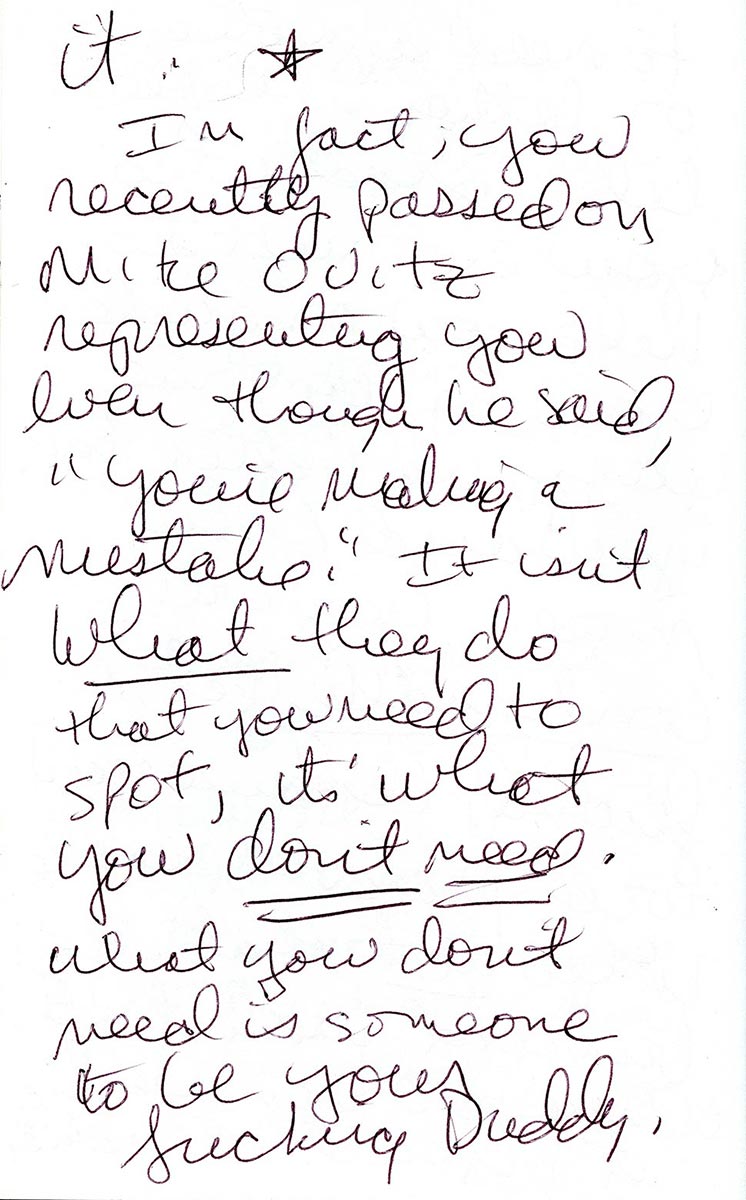 it. ☆
In fact, you
recently passed on
Mike Ovitz
representing you
even though he said,
"you're making a
mistake." It isn't
what they do
that you need to
spot, its' what
you don't need.
what you don't
need is someone
to be your
fucking Daddy.